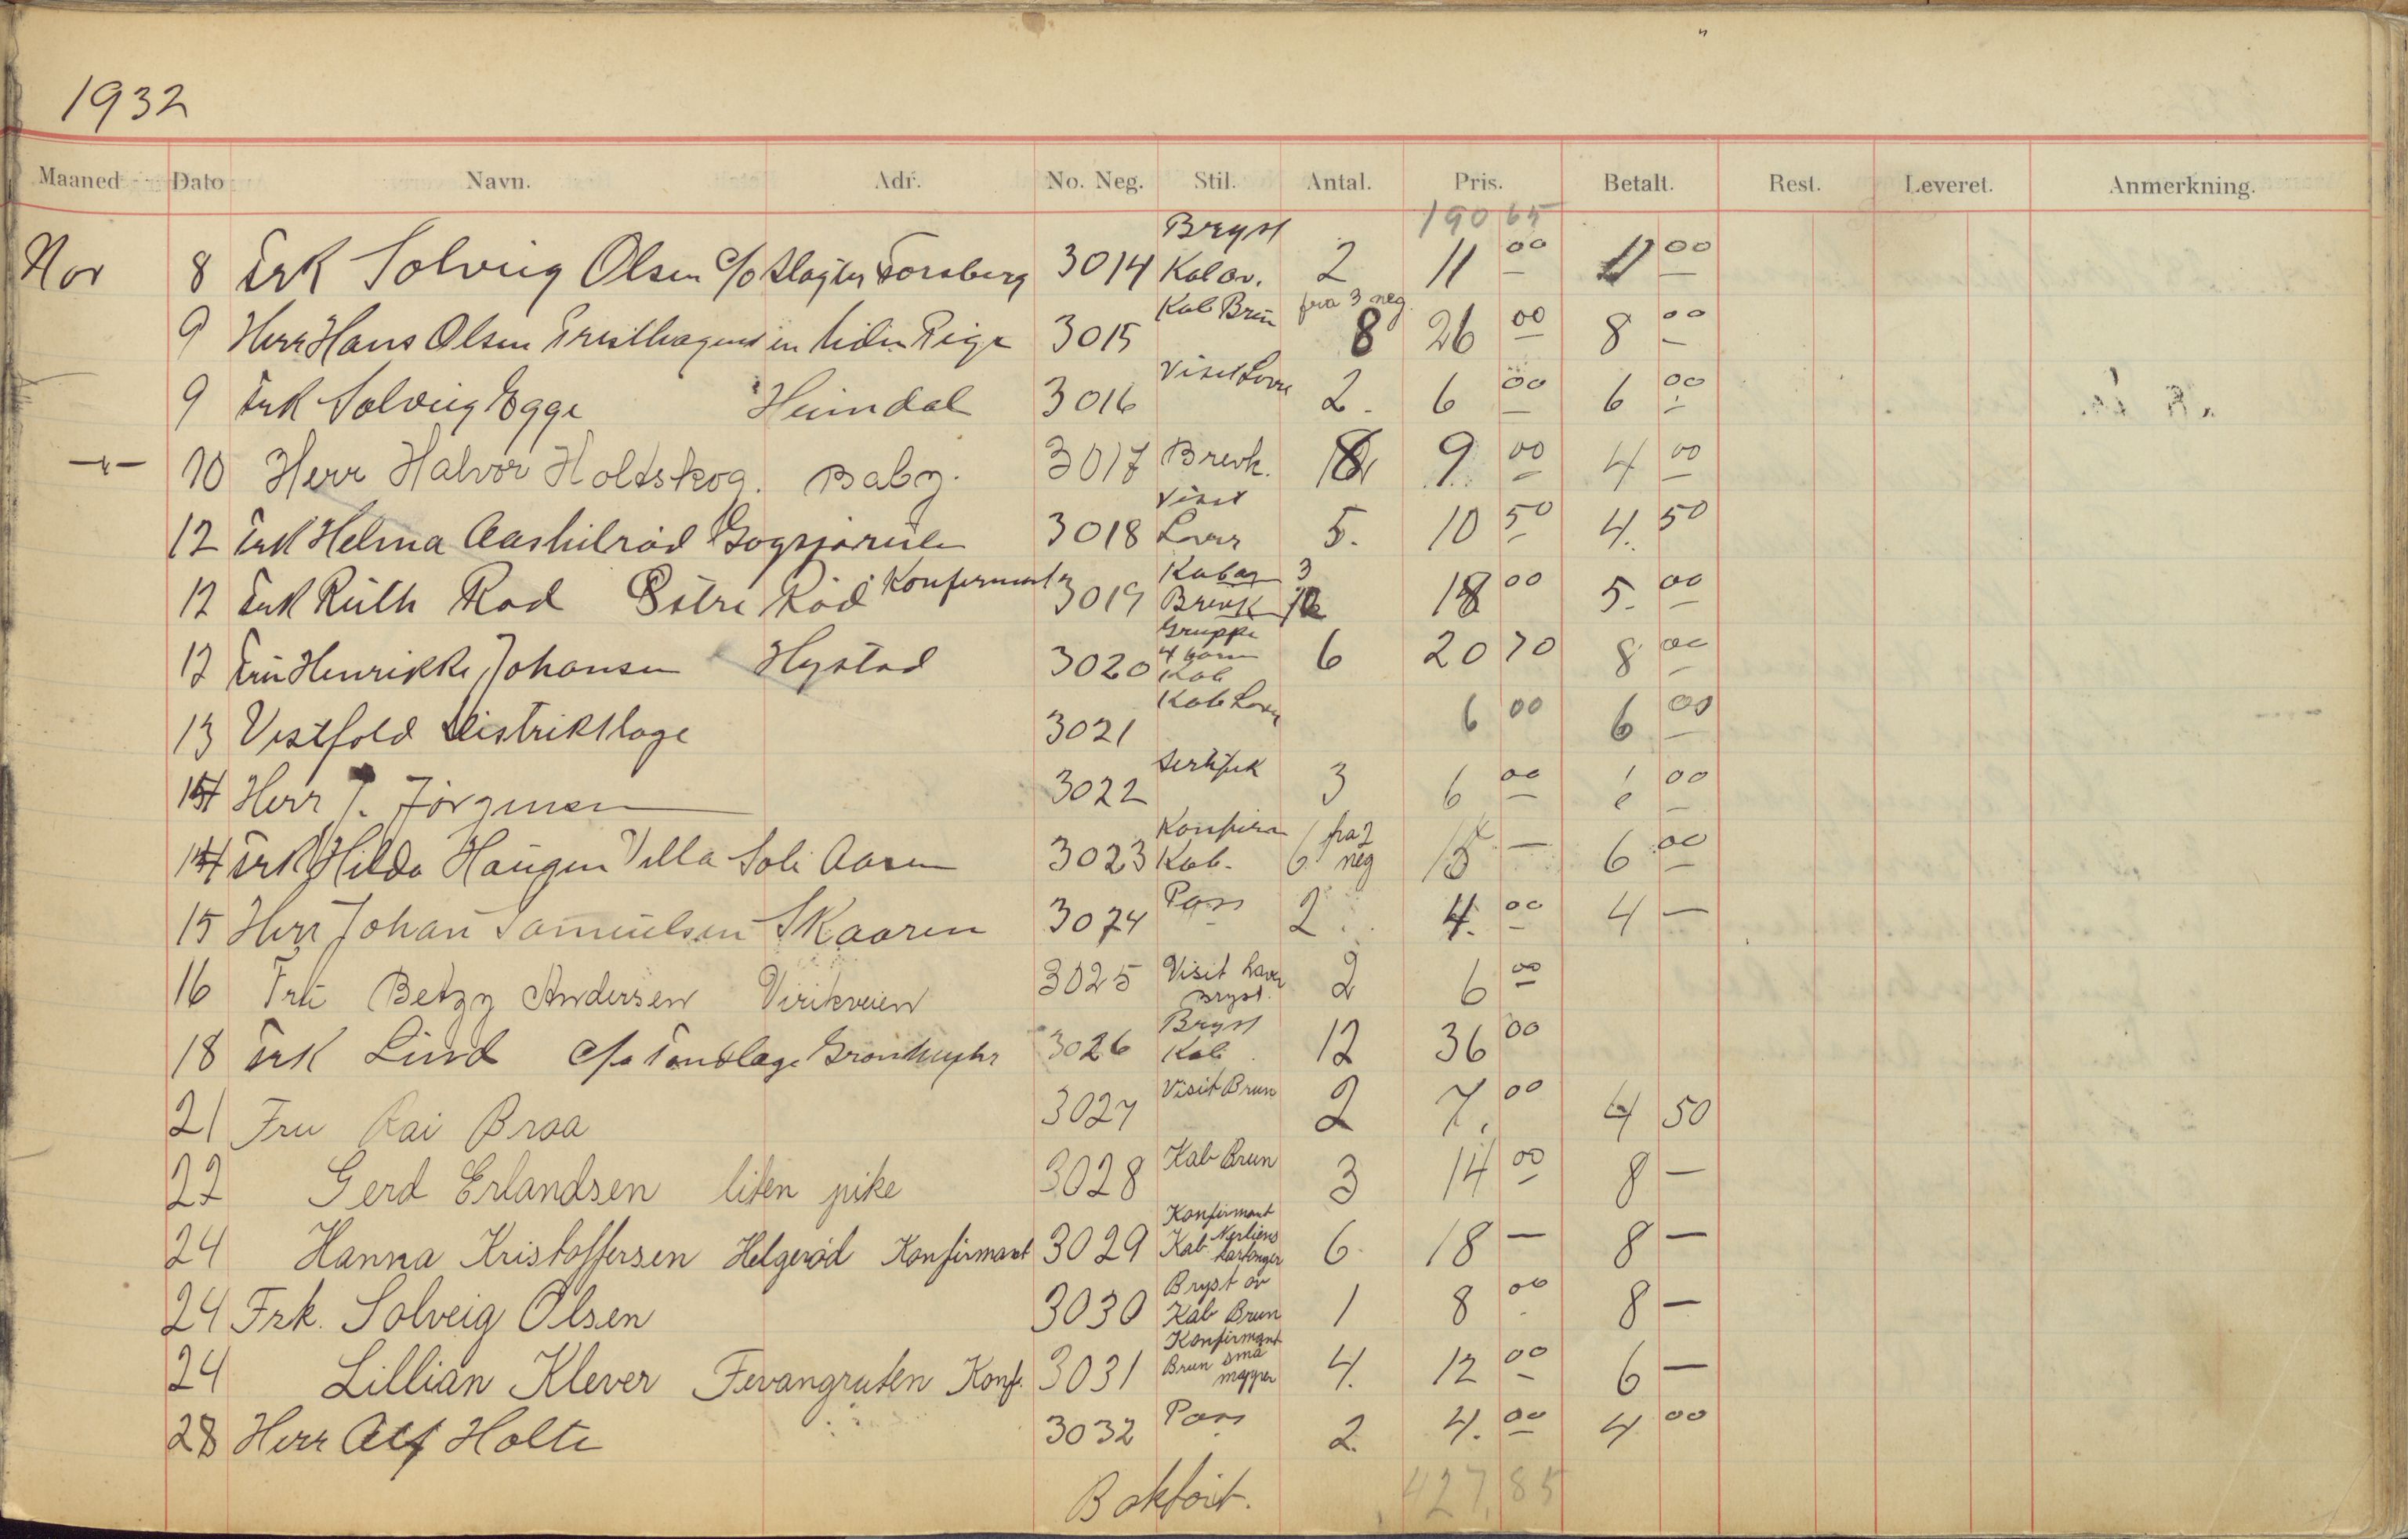 1932
Maaned Dato Navn. Adr. No. Neg. Stil. Antal. Pris. Betalt. Rest. Leveret. Anmerkning.
190 65
Nov 8 Frk Solveig Olsen c/o Slagter Forsberg 3014 Bryst Kab 2 11 00 11 00
9 Herr Hans Olsen en liden Pige 3015 Kab Brun fra 3 neg 8 26 00 8 00
9 Frk Solveig Egge Heimdal 3016 Visit 2. 6 00 6 00
-"- 10 Herr Halvor Holtskog. Baby. 3017 Brevk. 8 9 00 4 00
12 Frk Helma 3018 Visit 5. 10 50 4. 50
12 Frk Ruth Rød Østre Rød Konfirmant 3019 Kab 3 Brevk 18 00 5. 00
12 Fru Henrikke Johansen Hystad 3020 Gruppe 4 barn Kab 6 20 70 8 00
13 Vestfold Distriktlage 3021 Kab 6 00 6 00
Herr J. Jörgensen 3022 Sertifik 3 6 00 00
Frk Hilda Haugen Villa Soli Aasen 3023 Konfirm Kab. 6 fra 2 neg 15 — 6 00
15 Herr Johan Samuelsen Skaaren 3024 Pass 2 4. 00 4 —
16 Fru Betzy Andersen Virikveien 3025 Visit Bryst. 2 6 00
18 Frk Lind c/o 3026 Bryst Kab 12 36 00
21 Fru Kai Braa 3027 Visit Brun 2 7. 00 4 50
22 Gerd Erlandsen liten pike 3028 Kab Brun 3 14 00 8 —
24 Hanna Kristoffersen Helgerød Konfirmant 3029 Konfirmant Kab. Nerliens kartonger 6. 18 — 8 —
24 Frk. Solveig Olsen 3030 Bryst ov Kab Brun 1 8 00 8 —
24 Lillian Klever Fevangruten Konf. 3031 Konfirmant Brun små mapper 4. 12 00 6 —
28 Herr Alf Holte 3032 Pass 2. 4. 00 4 00
Bokfört. 427,85